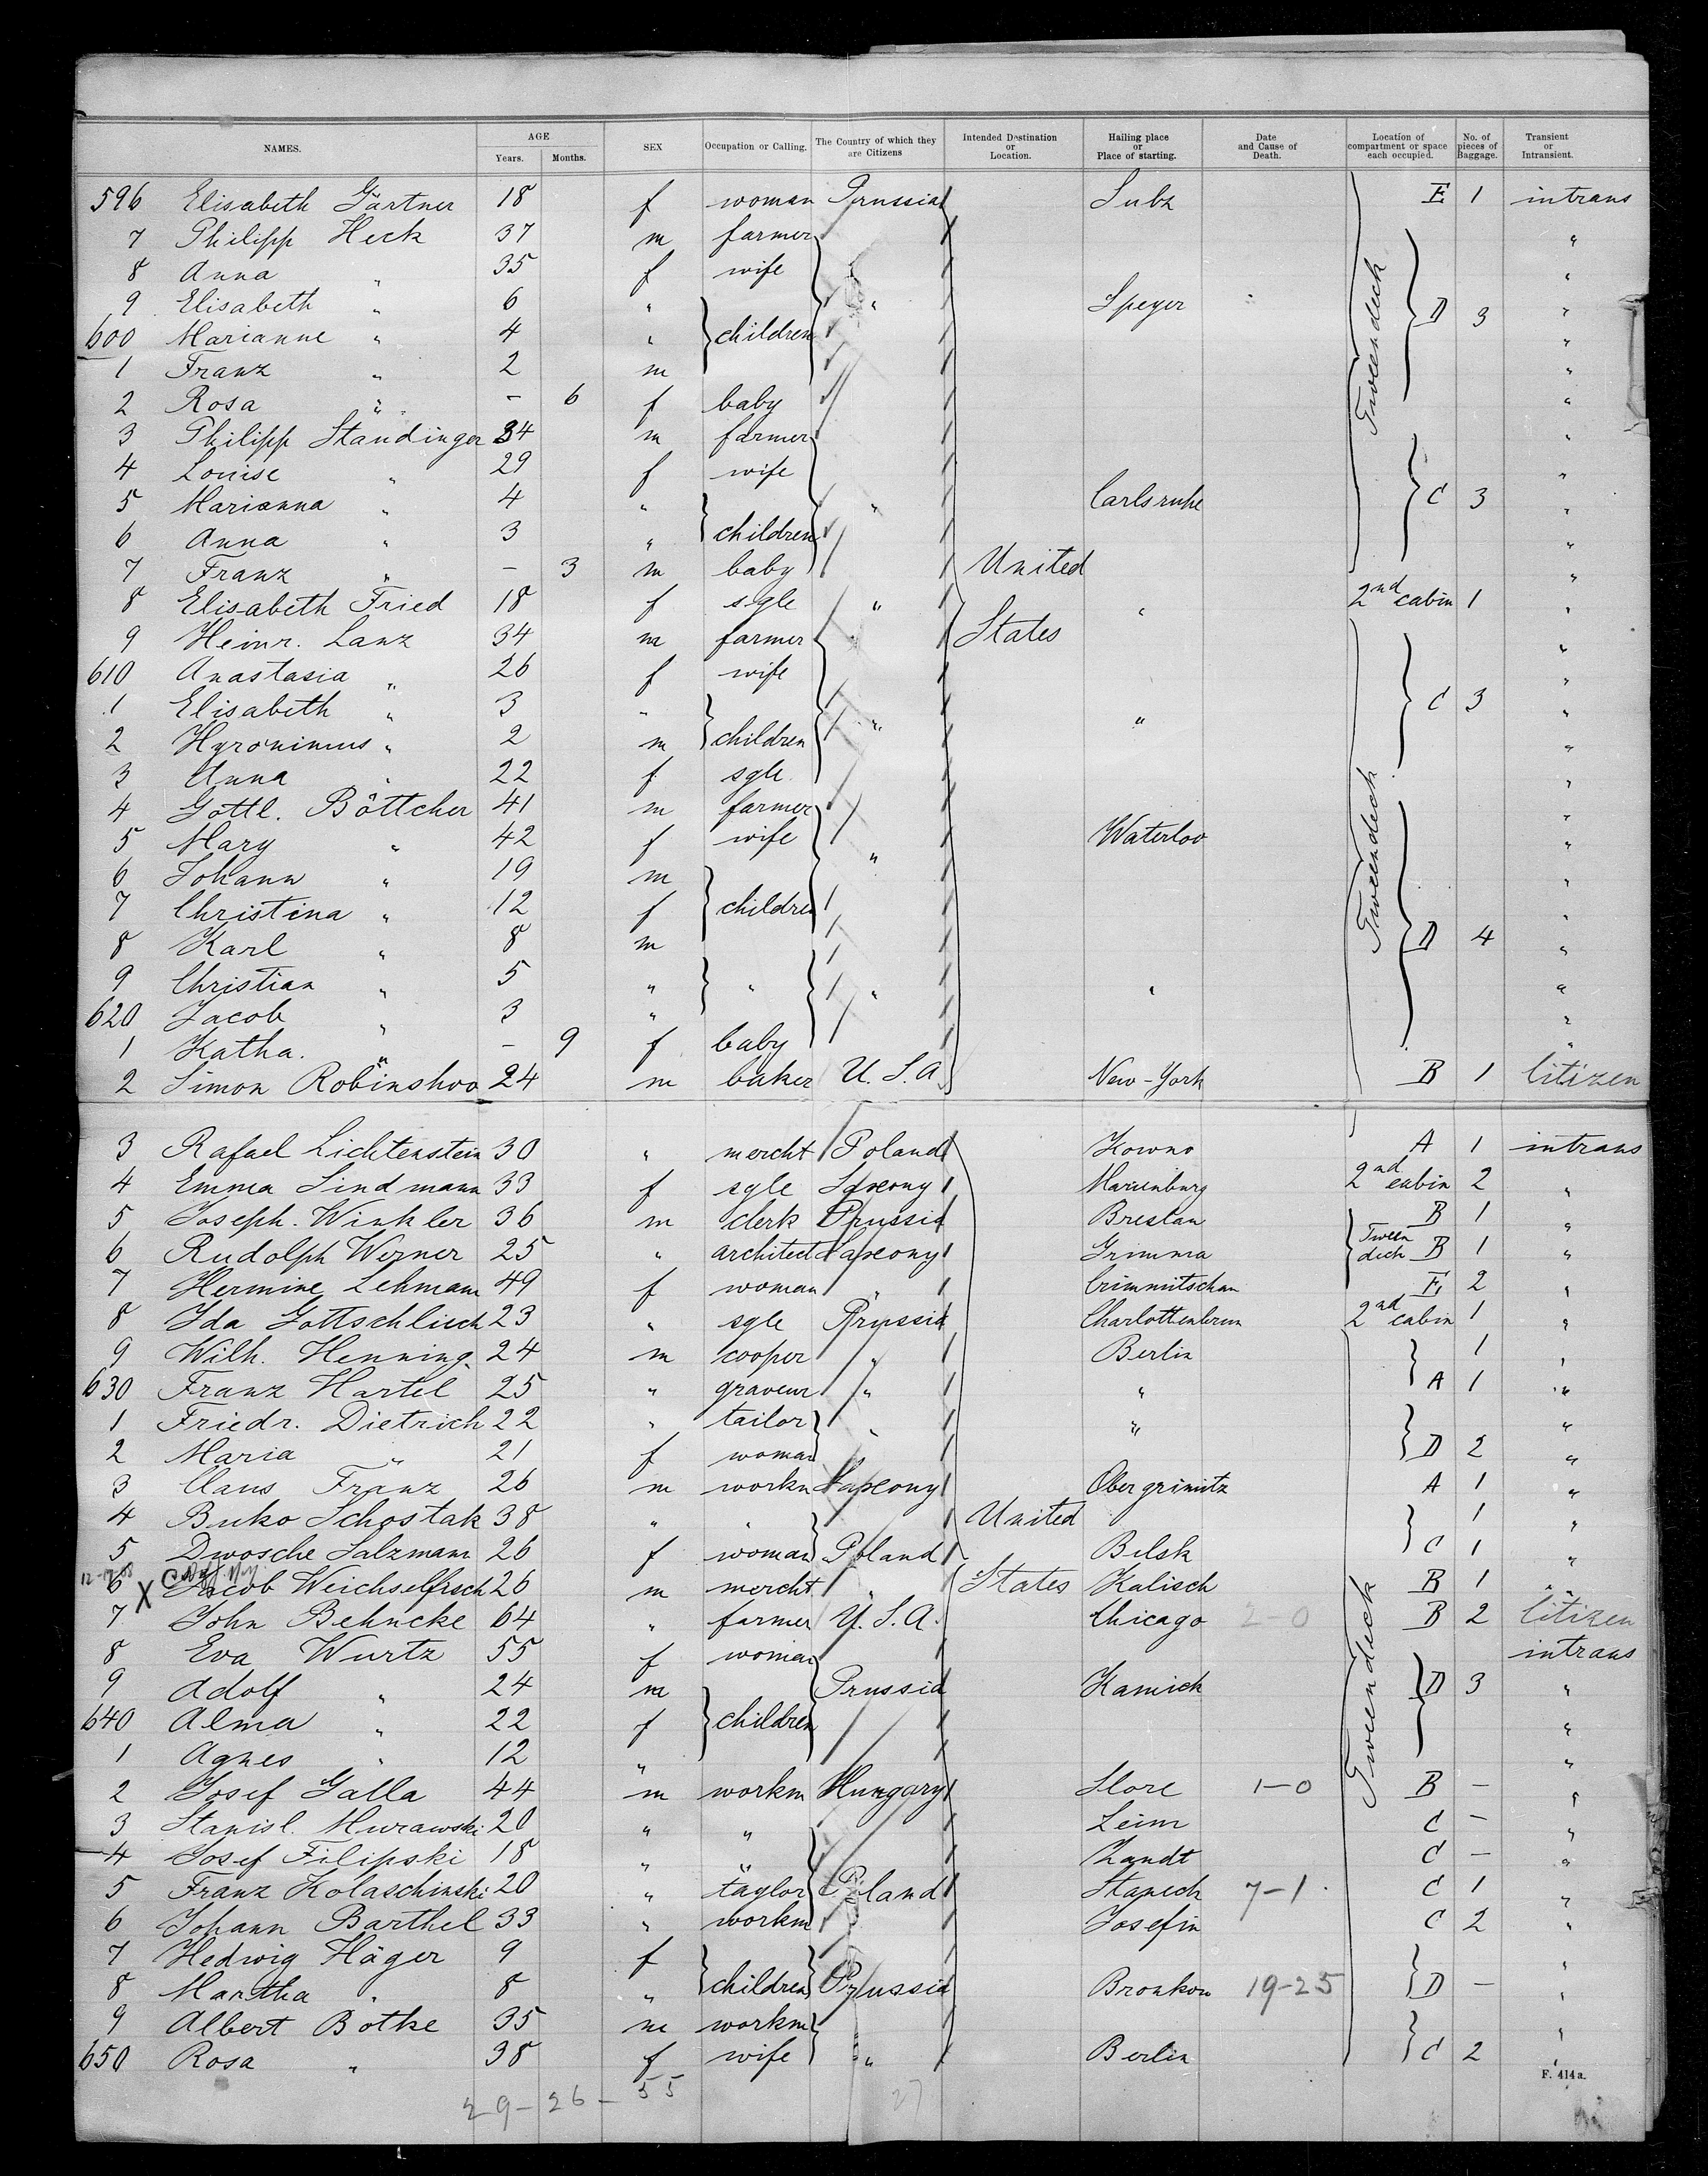 NAMES. AGE Years. Months. SEX Occupation or Calling. The Country of which they are Citizens Intended Destination or Location. Hailing place or Place of starting. Date and Cause of Death. Location of compartment or space each occupied. No. of pieces of Baggage. Transient or Intransient.
596 Elisabeth Gärtner 18 f woman Prussia Sulz E 1 intrans
7 Philipp Heck 37 m farmer "
8 Anna " 35 f wife "
9 Elisabeth " 6 " " Speyer Tweendeck D 3 "
600 Marianne " 4 " children "
1 Franz " 2 m "
2 Rosa " - 6 f baby "
3 Philipp Standinger 34 m farmer "
4 Louise " 29 f wife "
5 Marianna " 4 " " Carlsruhe C 3 "
6 Anna " 3 " children "
7 Franz " - 3 m baby United "
8 Elisabeth Fried 18 f sgle " " 2nd cabin 1 "
9 Heinr. Lanz 34 m farmer States "
610 Anastasia " 26 f wife "
1 Elisabeth " 3 " " " C 3 "
2 Hyronimus " 2 m children "
3 Anna " 22 f sgle "
4 Gottl. Böttcher 41 m farmer "
5 Mary " 42 f wife " Waterloo "
6 Johann " 19 m "
7 Christina " 12 f children "
8 Karl " 8 m Tweendeck D 4 "
9 Christian " 5 " " " " "
620 Jacob " 3 " "
1 Katha. " - 9 f baby "
2 Simon Robinshoo 24 m baker U.S.A. New-York B 1 Citizen
3 Rafael Lichtenstein 30 " mercht Poland Kowno A 1 intrans
4 Emma Lindmann 33 f sgle Saxony Marienburg 2nd cabin 2 "
5 Joseph. Winkler 36 m clerk Prussia Breslau B 1 "
6 Rudolph Werner 25 " architect Saxony Grimma Tween deck B 1 "
7 Hermine Lehmann 49 f woman " Crimmitschau E 2 "
8 Ida Gottschlisch 23 " sgle Prussia Charlottenbrun 2nd cabin 1 "
9 Wilh. Henning 24 m cooper " Berlin 1 "
630 Franz Hartel 25 " graveur " " A 1 "
1 Friedr. Dietrich 22 " tailor " " "
2 Maria " 21 f woman D 2 "
3 Claus Franz 26 m workn Saxony Obergrimitz A 1 "
4 Buko Schostak 38 " " United 1 "
5 Dwosche Salzmann 26 f woman Poland Bilsk C 1 "
6 X Jacob Weichselfisch 26 m mercht " States Kalisch B 1 "
7 John Behncke 64 " farmer U.S.A. Chicago 2-0 B 2 Citizen
8 Eva Wurtz 55 f woman intrans
9 Adolf " 24 m Prussia Kamick D 3 "
640 Alma " 22 f children Tweendeck "
1 Agnes " 12 " "
2 Josef Galla 44 m workm Hungary Slore 1-0 B - "
3 Stanisl. Murawski 20 " " Leim C - "
4 Josef Filipski 18 " " Zandt C - "
5 Franz Kolaschinski 20 " taylor Poland Stanech 7-1 C 1 "
6 Johann Barthel 33 " workm Josefin C 2 "
7 Hedwig Häger 9 f "
8 Martha " 8 " children Prussia Bronkow 19-25 D - "
9 Albert Botke 35 m workm "
650 Rosa " 38 f wife " Berlin C 2 "
F. 414a.
29-26-55 27